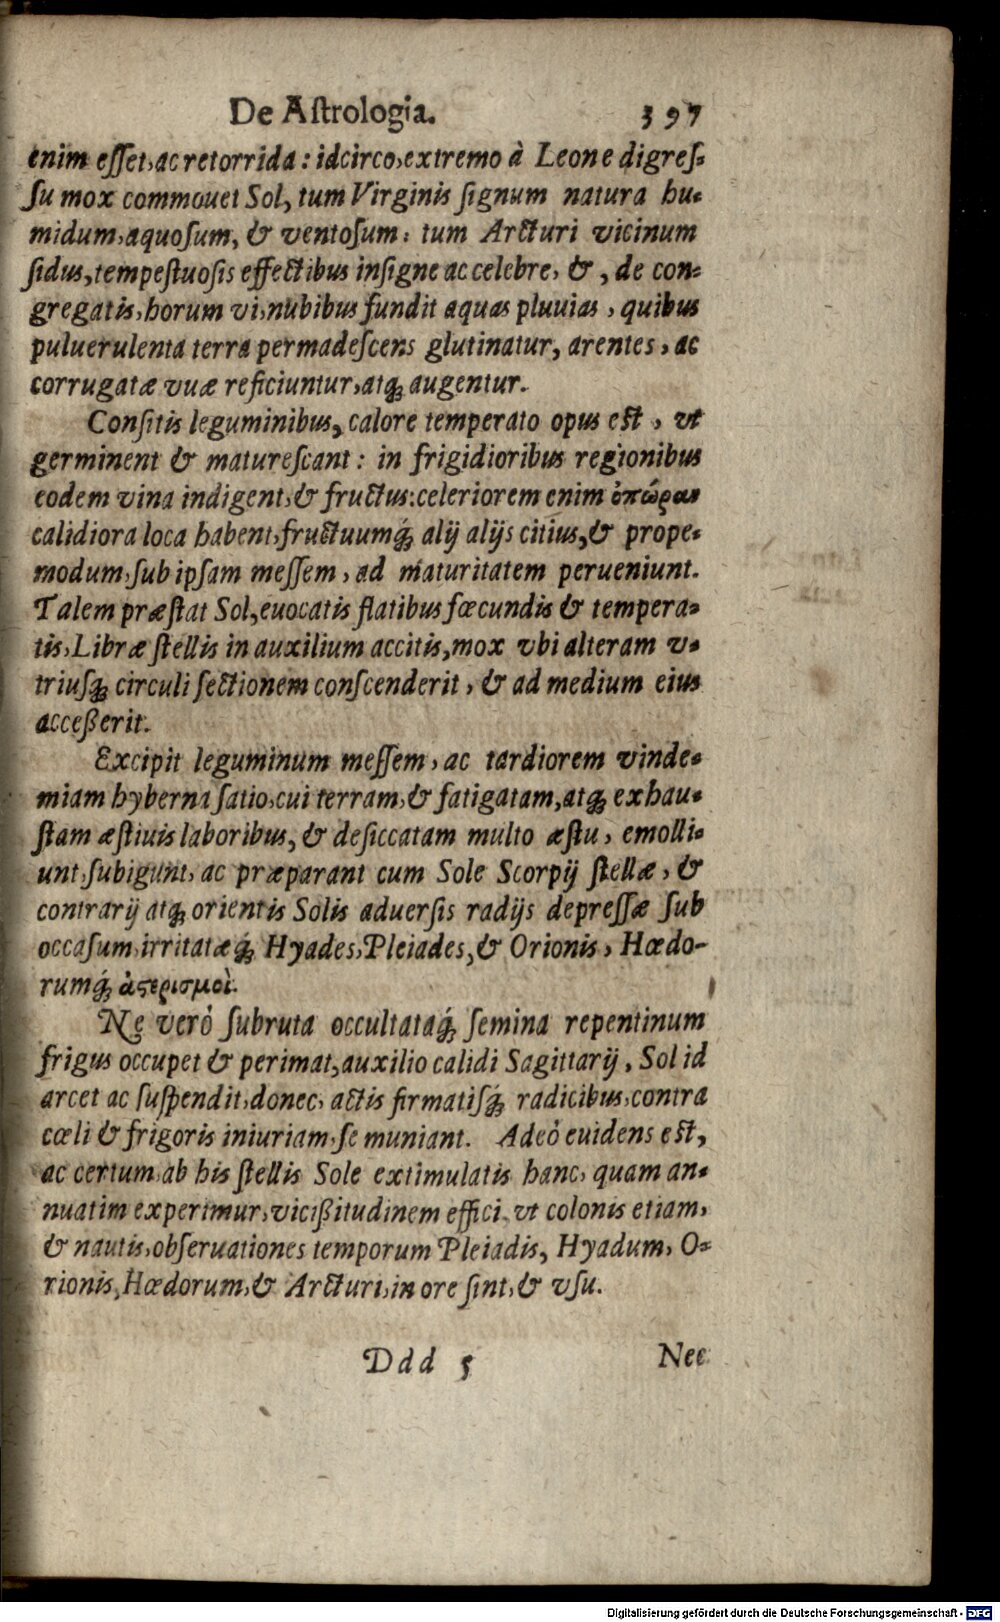 De Aſtrologia. 397
enim eſſet, ac retorrida: idcirco, extremo à Leone digreſ-
ſu mox commouet Sol, tum Virginis ſignum natura hu-
midum, aquoſum, & ventoſum: tum Arcturi vicinum
ſidus, tempeſtuoſis effectibus inſigne ac celebre, &, de con-
gregatis, horum vi, nubibus fundit aquas pluuias, quibus
puluerulenta terra permadeſcens glutinatur, arentes, ac
corrugatæ vuæ reficiuntur, atq; augentur.
Conſitis leguminibus, calore temperato opus est, vt
germinent & matureſcant: in frigidioribus regionibus
eodem vina indigent, & fructus: celeriorem enim ὀπώραν
calidiora loca habent, fructuumq́; alij alijs citius, & prope-
modum, ſub ipſam meſſem, ad maturitatem perueniunt.
Talem præſtat Sol, euocatis flatibus fœcundis & tempera-
tis, Libræ ſtellis in auxilium accitis, mox vbi alteram v-
triuſq; circuli ſectionem conſcenderit, & ad medium eius
acceßerit.
Excipit leguminum meſſem, ac tardiorem vinde-
miam hyberna ſatio, cui terram, & fatigatam, atq; exhau-
ſtam æſtiuis laboribus, & deſiccatam multo æſtu, emolli-
unt, ſubigunt, ac præparant cum Sole Scorpij ſtellæ, &
contrarij atq; orientis Solis aduerſis radijs depreſſæ ſub
occaſum, irritatæq́; Hyades, Pleiades, & Orionis, Hœdo-
rumq́; ἀστερισμοὶ.
Ne verò ſubruta occultataq́; ſemina repentinum
frigus occupet & perimat, auxilio calidi Sagittarij, Sol id
arcet ac ſuſpendit, donec, actis firmatiſq́; radicibus, contra
cœli & frigoris iniuriam, ſe muniant. Adeò euidens est,
ac certum, ab his ſtellis Sole extimulatis hanc, quam an-
nuatim experimur, vicißitudinem effici, vt colonis etiam,
& nautis, obſeruationes temporum Pleiadis, Hyadum, O-
rionis, Hœdorum, & Arcturi, in ore ſint, & vſu.
Ddd 5 Nec
Digitalisierung gefördert durch die Deutsche Forschungsgemeinschaft - DFG